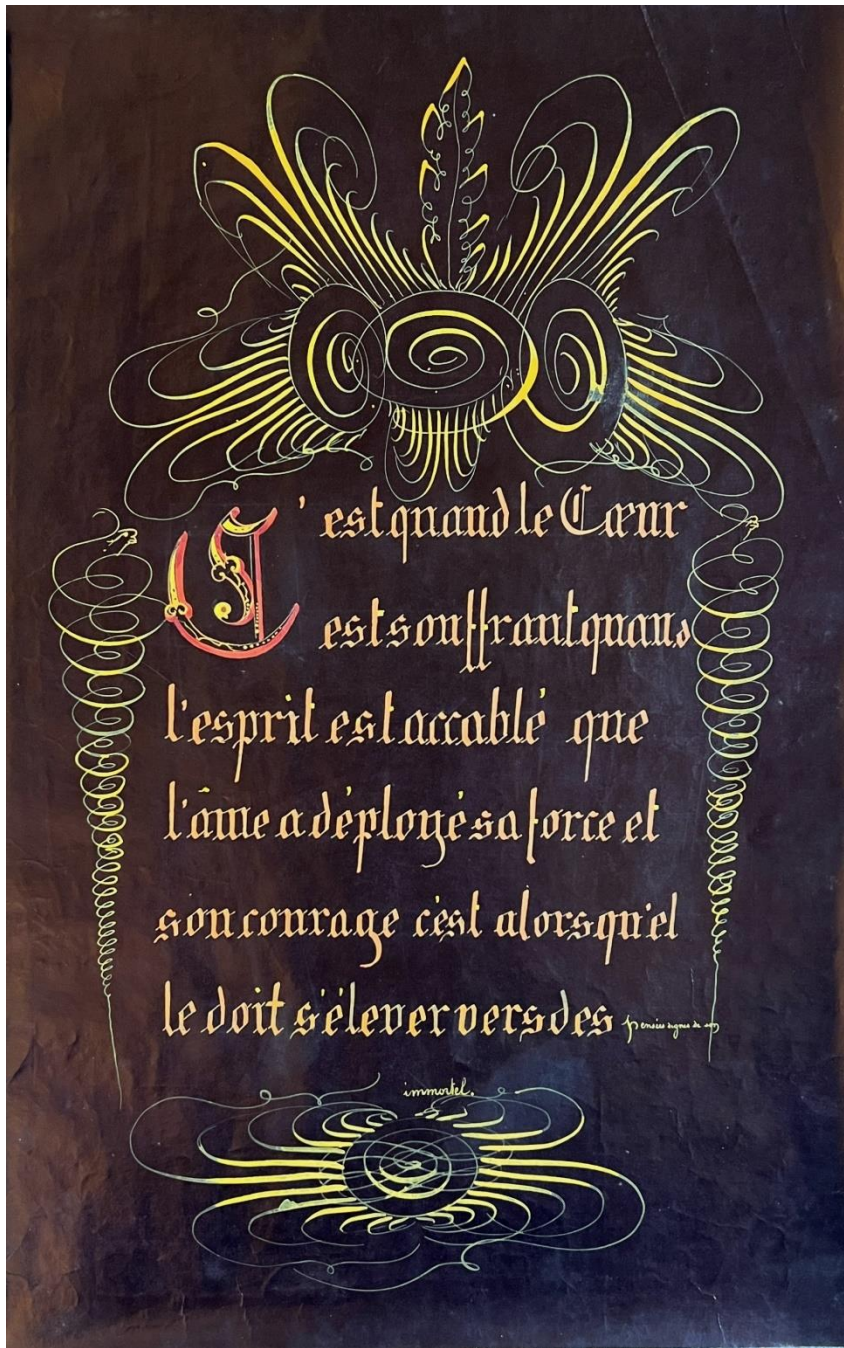 C'est quand le Cœur
est souffrant quand
l'esprit est accablé que
l'âme a déployé sa force et
son courage c'est alors qu'el
le doit s'élever vers des pensées dignes de son
immortel.